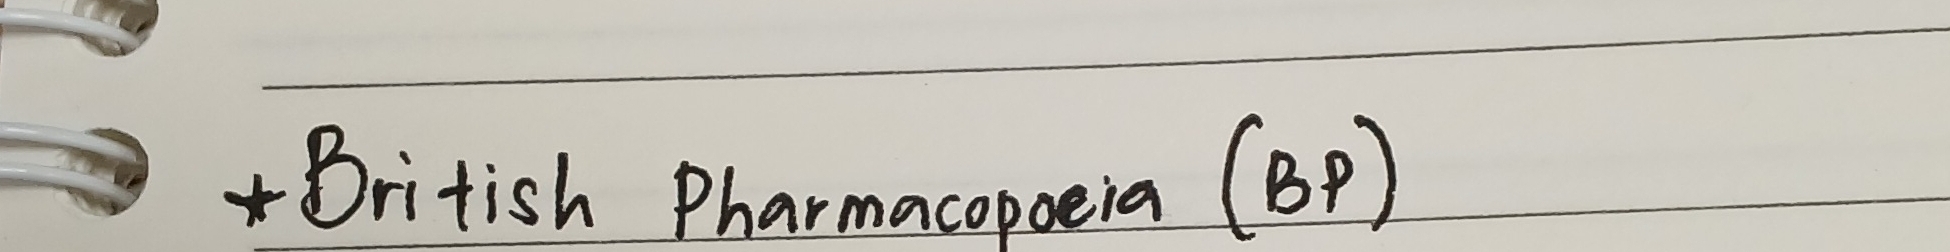 *British Pharmacopoeia (BP)